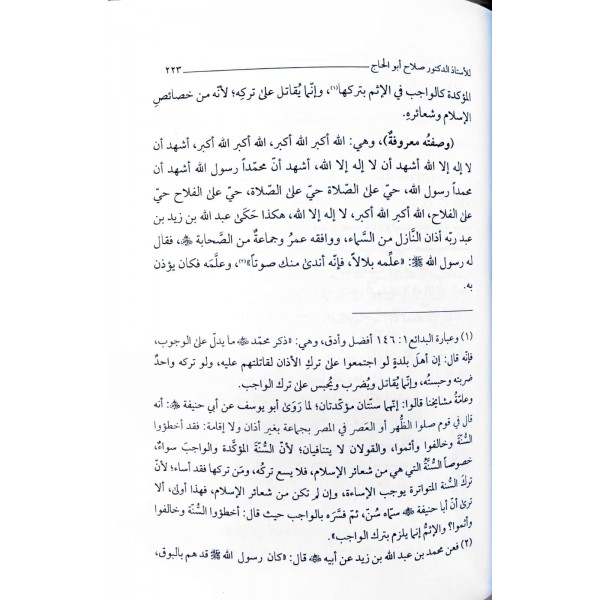 للأستاذ الدكتور صلاح أبو الحاج ٢٢٣
المؤكدة كالواجب في الإثم بتركها(١)، وإنَّما يُقاتل على تركِه؛ لأنّه من خصائصِ
الإسلام وشعائرِهِ.
(وصفتُه معروفةٌ)، وهي: الله أكبر الله أكبر، الله أكبر الله أكبر، أشهد أن
لا إله إلا الله أشهد أن لا إله إلا الله، أشهد أنّ محمّداً رسول الله أشهد أن
محمداً رسول الله، حيّ على الصّلاة حيّ على الصّلاة، حيّ على الفلاح حيّ
على الفلاح، الله أكبر الله أكبر، لا إله إلا الله، هكذا حَكَى عبد الله بن زيد بن
عبد ربّه أذان النَّازل من السَّماء، ووافقه عمرُ وجماعةٌ من الصَّحابة ﷺ، فقال
له رسول الله ﷺ: «علِّمه بلالاً، فإنّه أندى منك صوتاً»(٢)، وعلَّمَه فكان يؤذن
به.
(١) وعبارة البدائع ١: ١٤٦ أفضل وأدق، وهي: «ذكر محمّد ﷺ ما يدلّ على الوجوب،
فإنّه قال: إن أهلَ بلدةٍ لو اجتمعوا على تركِ الأذان لقاتلتهم عليه، ولو تركه واحدٌ
ضربته وحبستُه، وإنَّما يُقاتل ويُضرب ويُحبس على ترك الواجب.
وعامّةُ مشايخنا قالوا: إنّهما سنّتان مؤكّدتان؛ لما رَوَى أبو يوسف عن أبي حنيفة ﷺ: أنه
قال في قوم صلوا الظُّهر أو العَصر في المصر بجماعة بغير أذان ولا إقامة: فقد أخطؤوا
السُّنّة وخالفوا وأثموا، والقولان لا يتنافيان؛ لأنّ السُّنّةَ المؤكَّدة والواجبَ سواءٌ،
خصوصاً السُّنّةُ التي هي من شعائر الإسلام، فلا يسع تركُه، ومَن تركها فقد أساء؛ لأنّ
تركَ السُّنة المتواترة يوجب الإساءة، وإن لم تكن من شعائر الإسلام، فهذا أولى، ألا
ترى أنّ أبا حنيفة ﷺ سمّاه سُنّ، ثمّ فسَّرَه بالواجب حيث قال: أخطؤوا السُّنّة وخالفوا
وأثموا؟ والإثمُ إنما يلزم بترك الواجب».
(٢) فعن محمد بن عبد الله بن زيد عن أبيه ﷺ قال: «كان رسول الله ﷺ قد هم بالبوق،